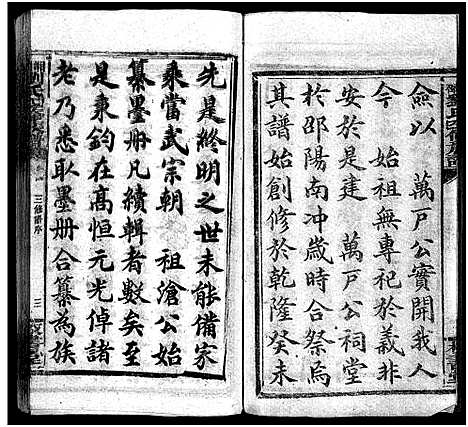 僉以 萬戸公實開我人
今 始祖無專祀於義非
安於是建 萬戸公祠堂
於邵陽南冲歲時合祭烏
其譜始創修於乾隆癸未
先是終明之世未能備家
乘當武宗朝 祖滄公始
纂墨册凡續輯者數矣至
是秉鈞在高恒元光倬諸
老乃悉取墨册合纂為族
三修譜序
三